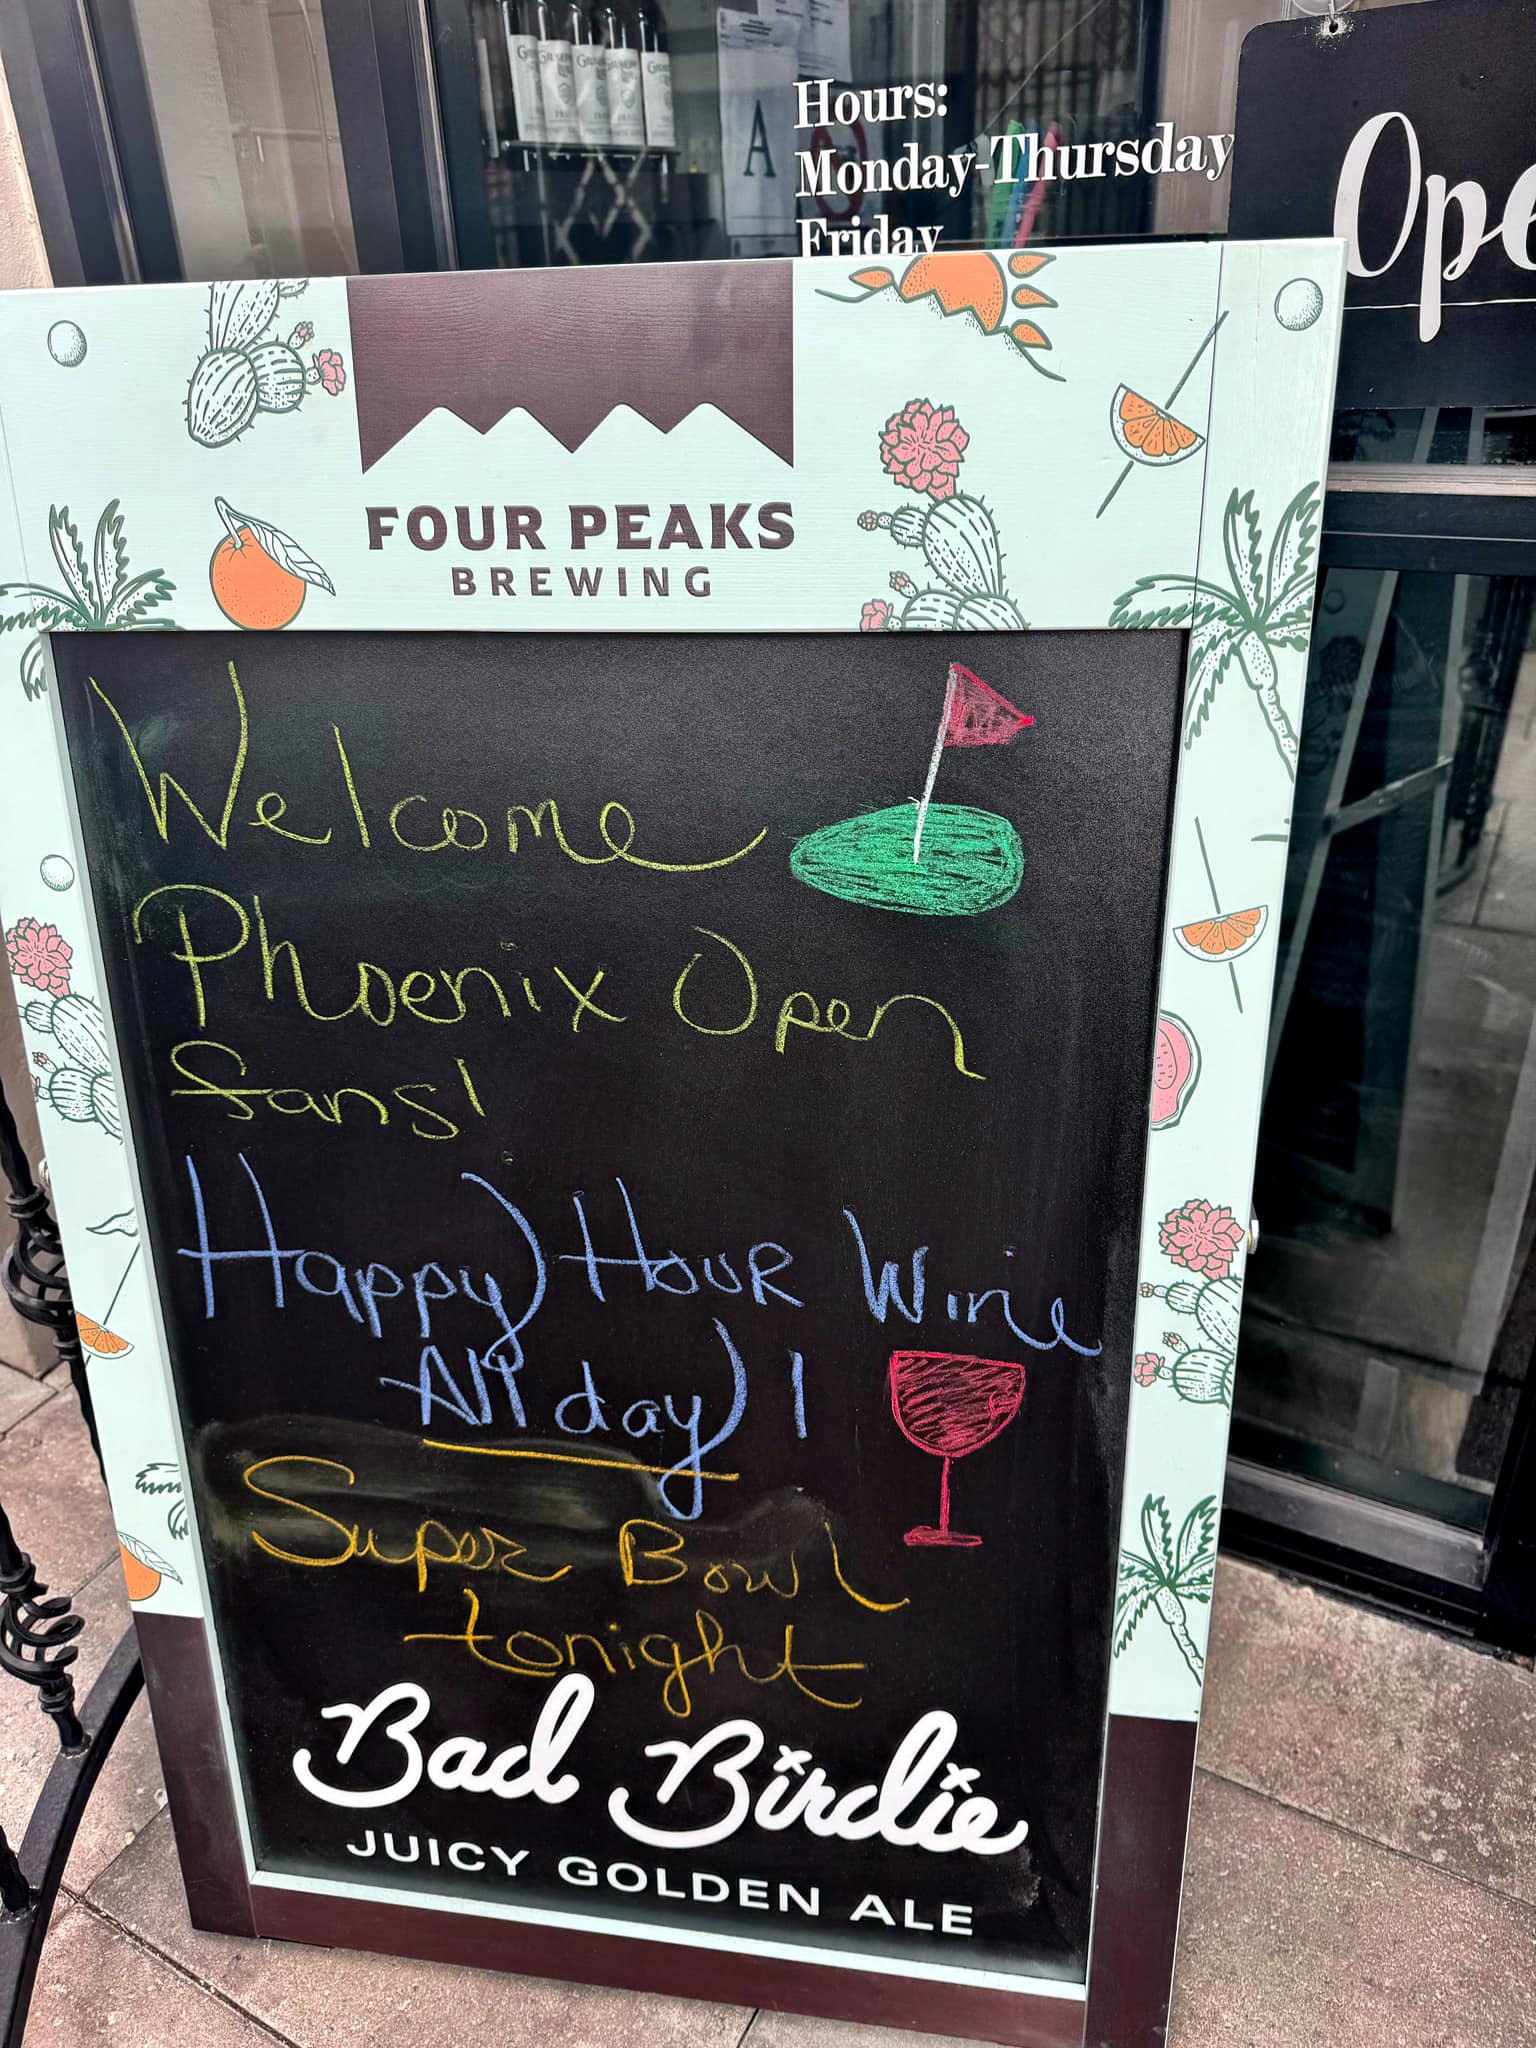 Hours:
Monday-Thursday
Friday
Ope
A
FOUR PEAKS
BREWING
Welcome
Phoenix Open
fans!
Happy Hour Wine
All day!
Super Bowl
tonight
Bad Birdie
JUICY GOLDEN ALE